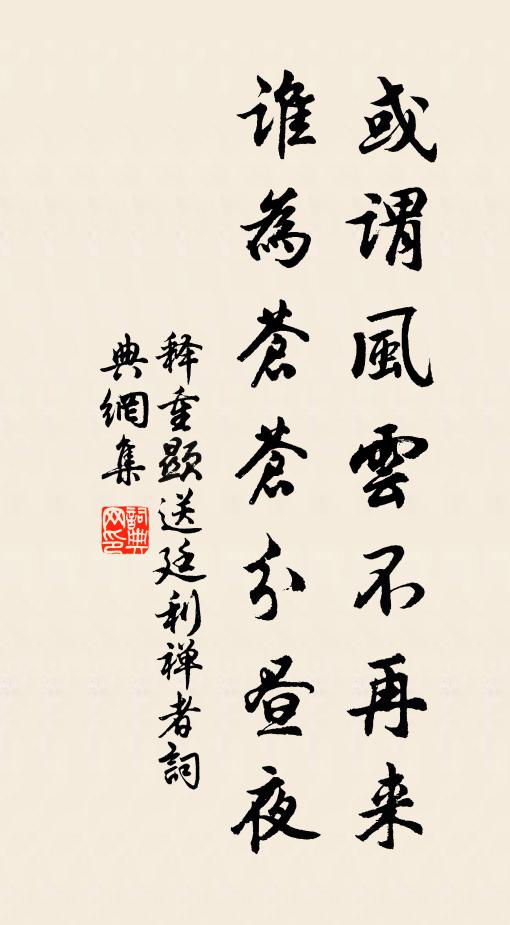 或谓風雲不再来
谁為蒼蒼分昼夜
释重顯送廷利禅者詞
典網集
詞典网印